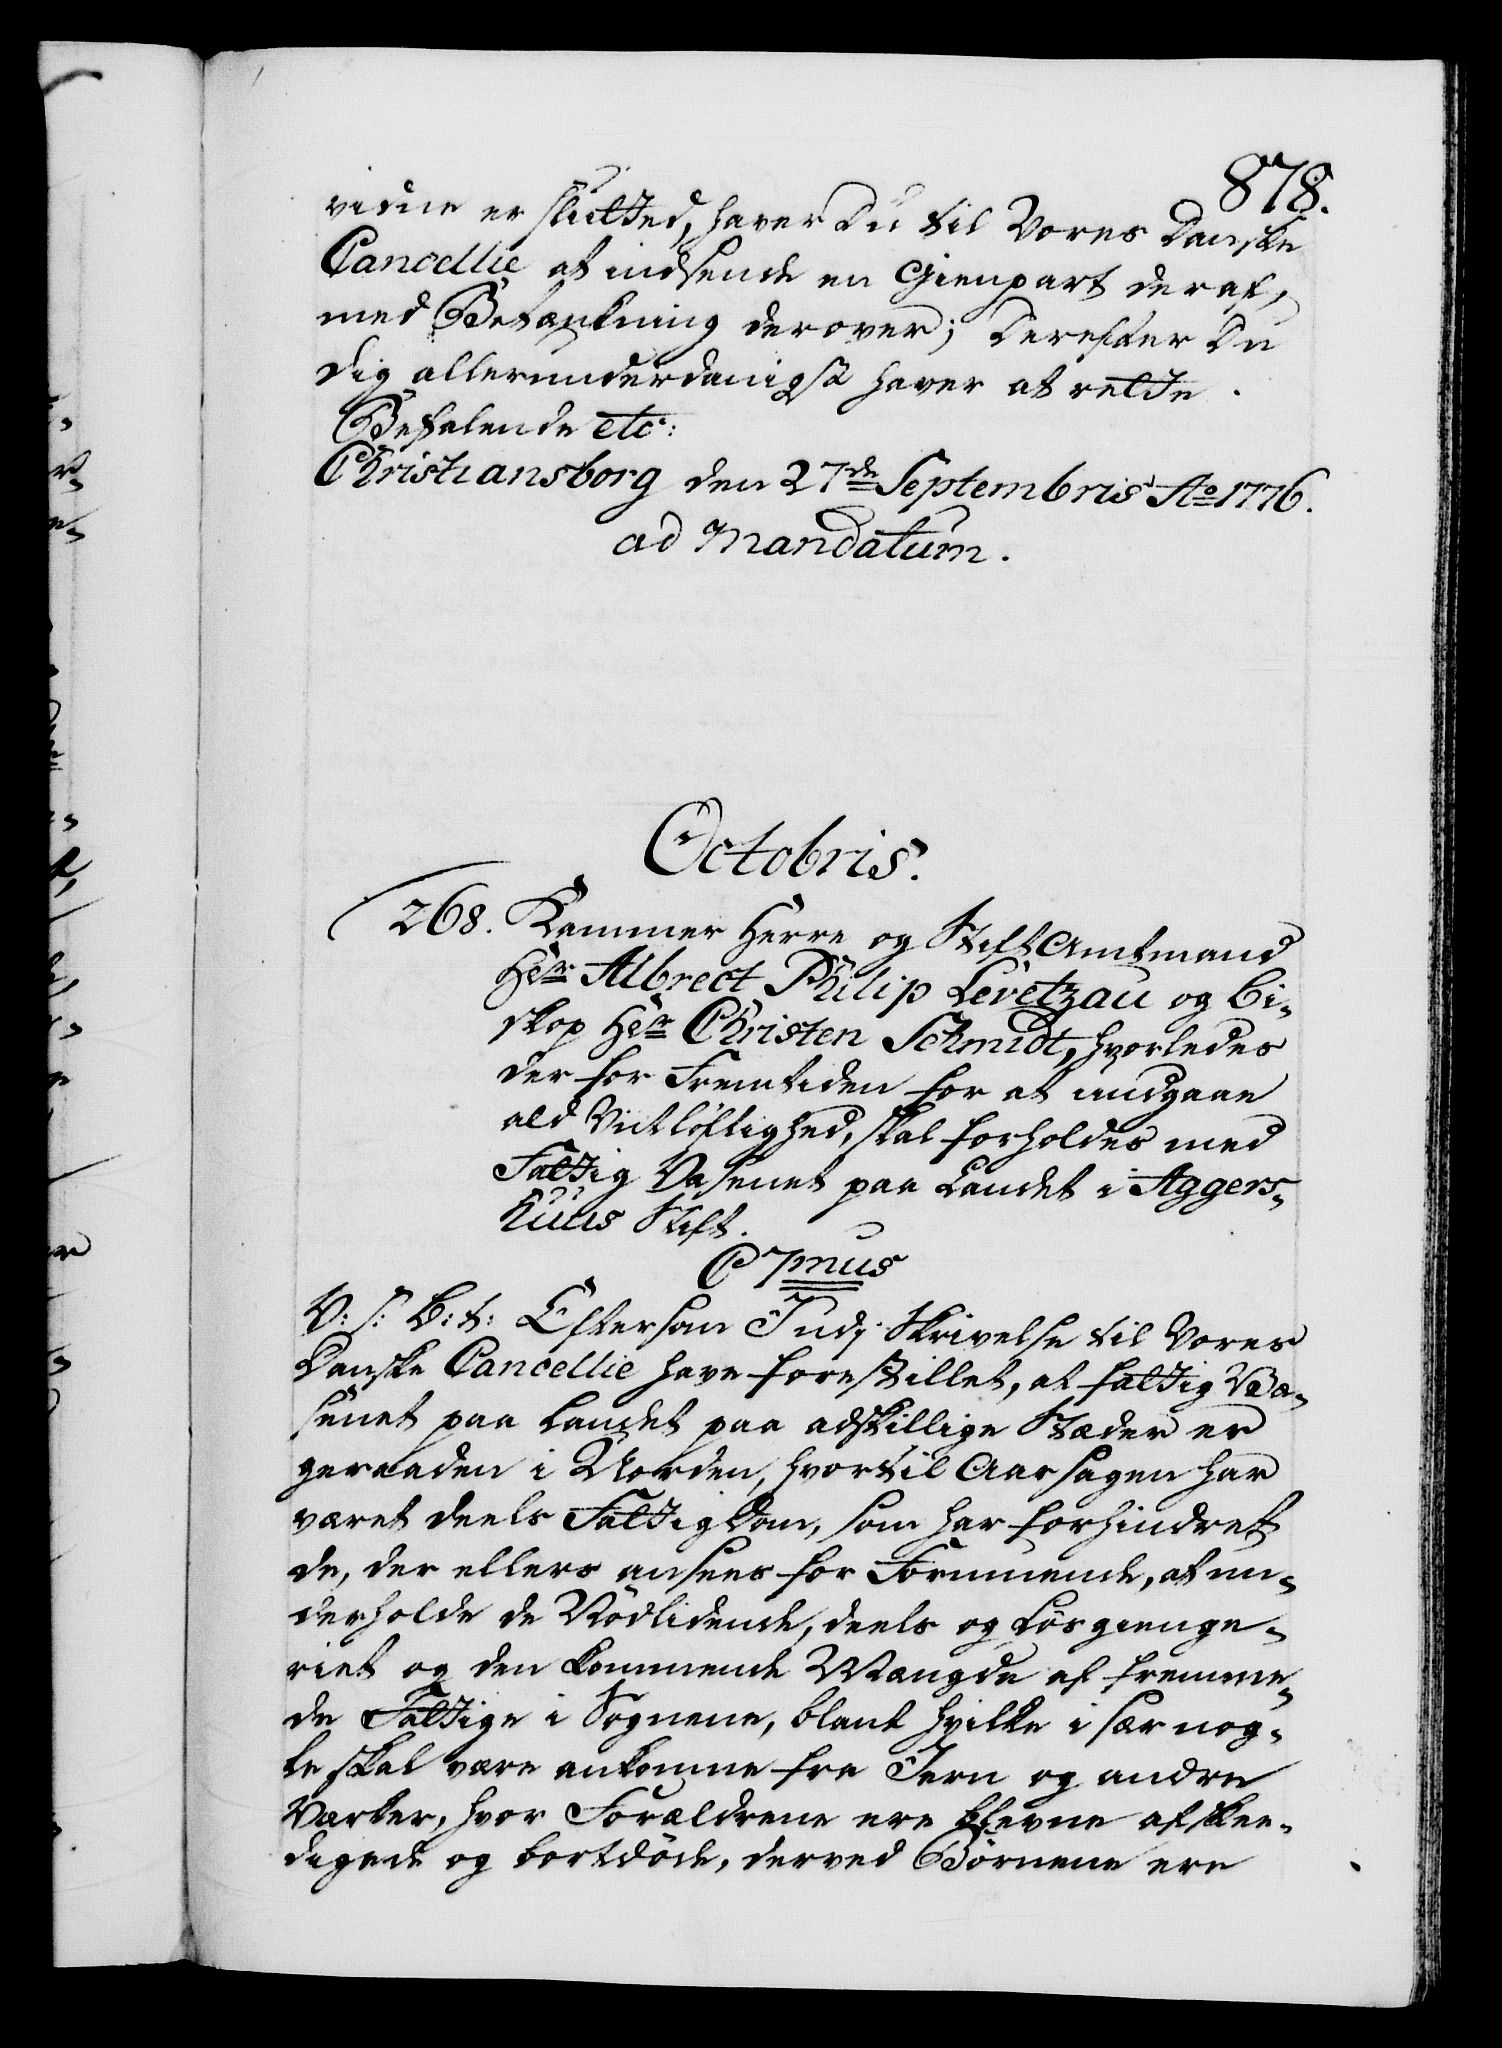 878.
vidne er slutted, haver Du til Vores Danske
Cancellie at indsende en Gienpart deraf,
med Betænkning derover; Derefter Du
dig allerunderdanigst haver at rette.
Befalende etc:
Christiansborg den 27de Septembris Ao 1776.
ad Mandatum.
Octobris.
268. Kammer Herre og Stift Amtmand
Her Albrect Philip Levetzau og Bi-
skop Her Christen Schmidt, hvorledes
der for Fremtiden for at undgaae
ald Vitløftighed, skal forholdes med
Fattig Væsenet paa Landet i Aggers-
huus Stift.
C 7mus
V: S: B: t: Eftersom I udj Skrivelse til Vores
Danske Cancellie have forestillet, at Fattig Væ-
senet paa Landet paa adskillige Stæder er
geraaden i Uorden, hvortil Aarsagen har
været deels Fattigdom, som har forhindret
de, der ellers ansees for Formuende, at un-
derholde de Nødlidende, deels og Løsgienge-
riet og den kommende Mængde af fremme-
de Fattige i Sognene, blant hvilke i sær nog-
le skal være ankomne fra Jern og andre
Værker, hvor Forældrene ere blevne afskee-
digede og bortdøde, derved Børnene ere